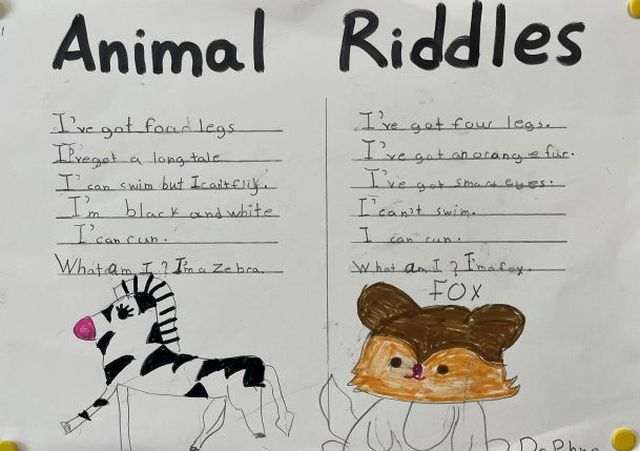 Animal Riddles
I've got four legs
I've got a long tale
I can swim but I can't fliy.
I'm black and white
I can run.
What am I? I'm a zebra.
I've got four legs.
I've got an orange fur.
I've got smart eyes.
I can't swim.
I can run.
What am I? I'm a fox.
FOX